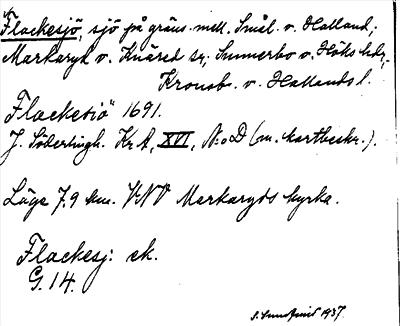 Flackesjö, sjö på gräns mell. Smål. o. Halland;
Markaryd o. Knäred sr; Sunnerbo o. Höks hdr,
Kronob. o. Hallands l.
"Flackesiö" 1691.
J. Söderlingh. KrA, XVI, N:o D (m. kartbeskr.).
Läge 7,9 km. VNV Markaryds kyrka.
Flackesj: ek.
G. 14.
1937.